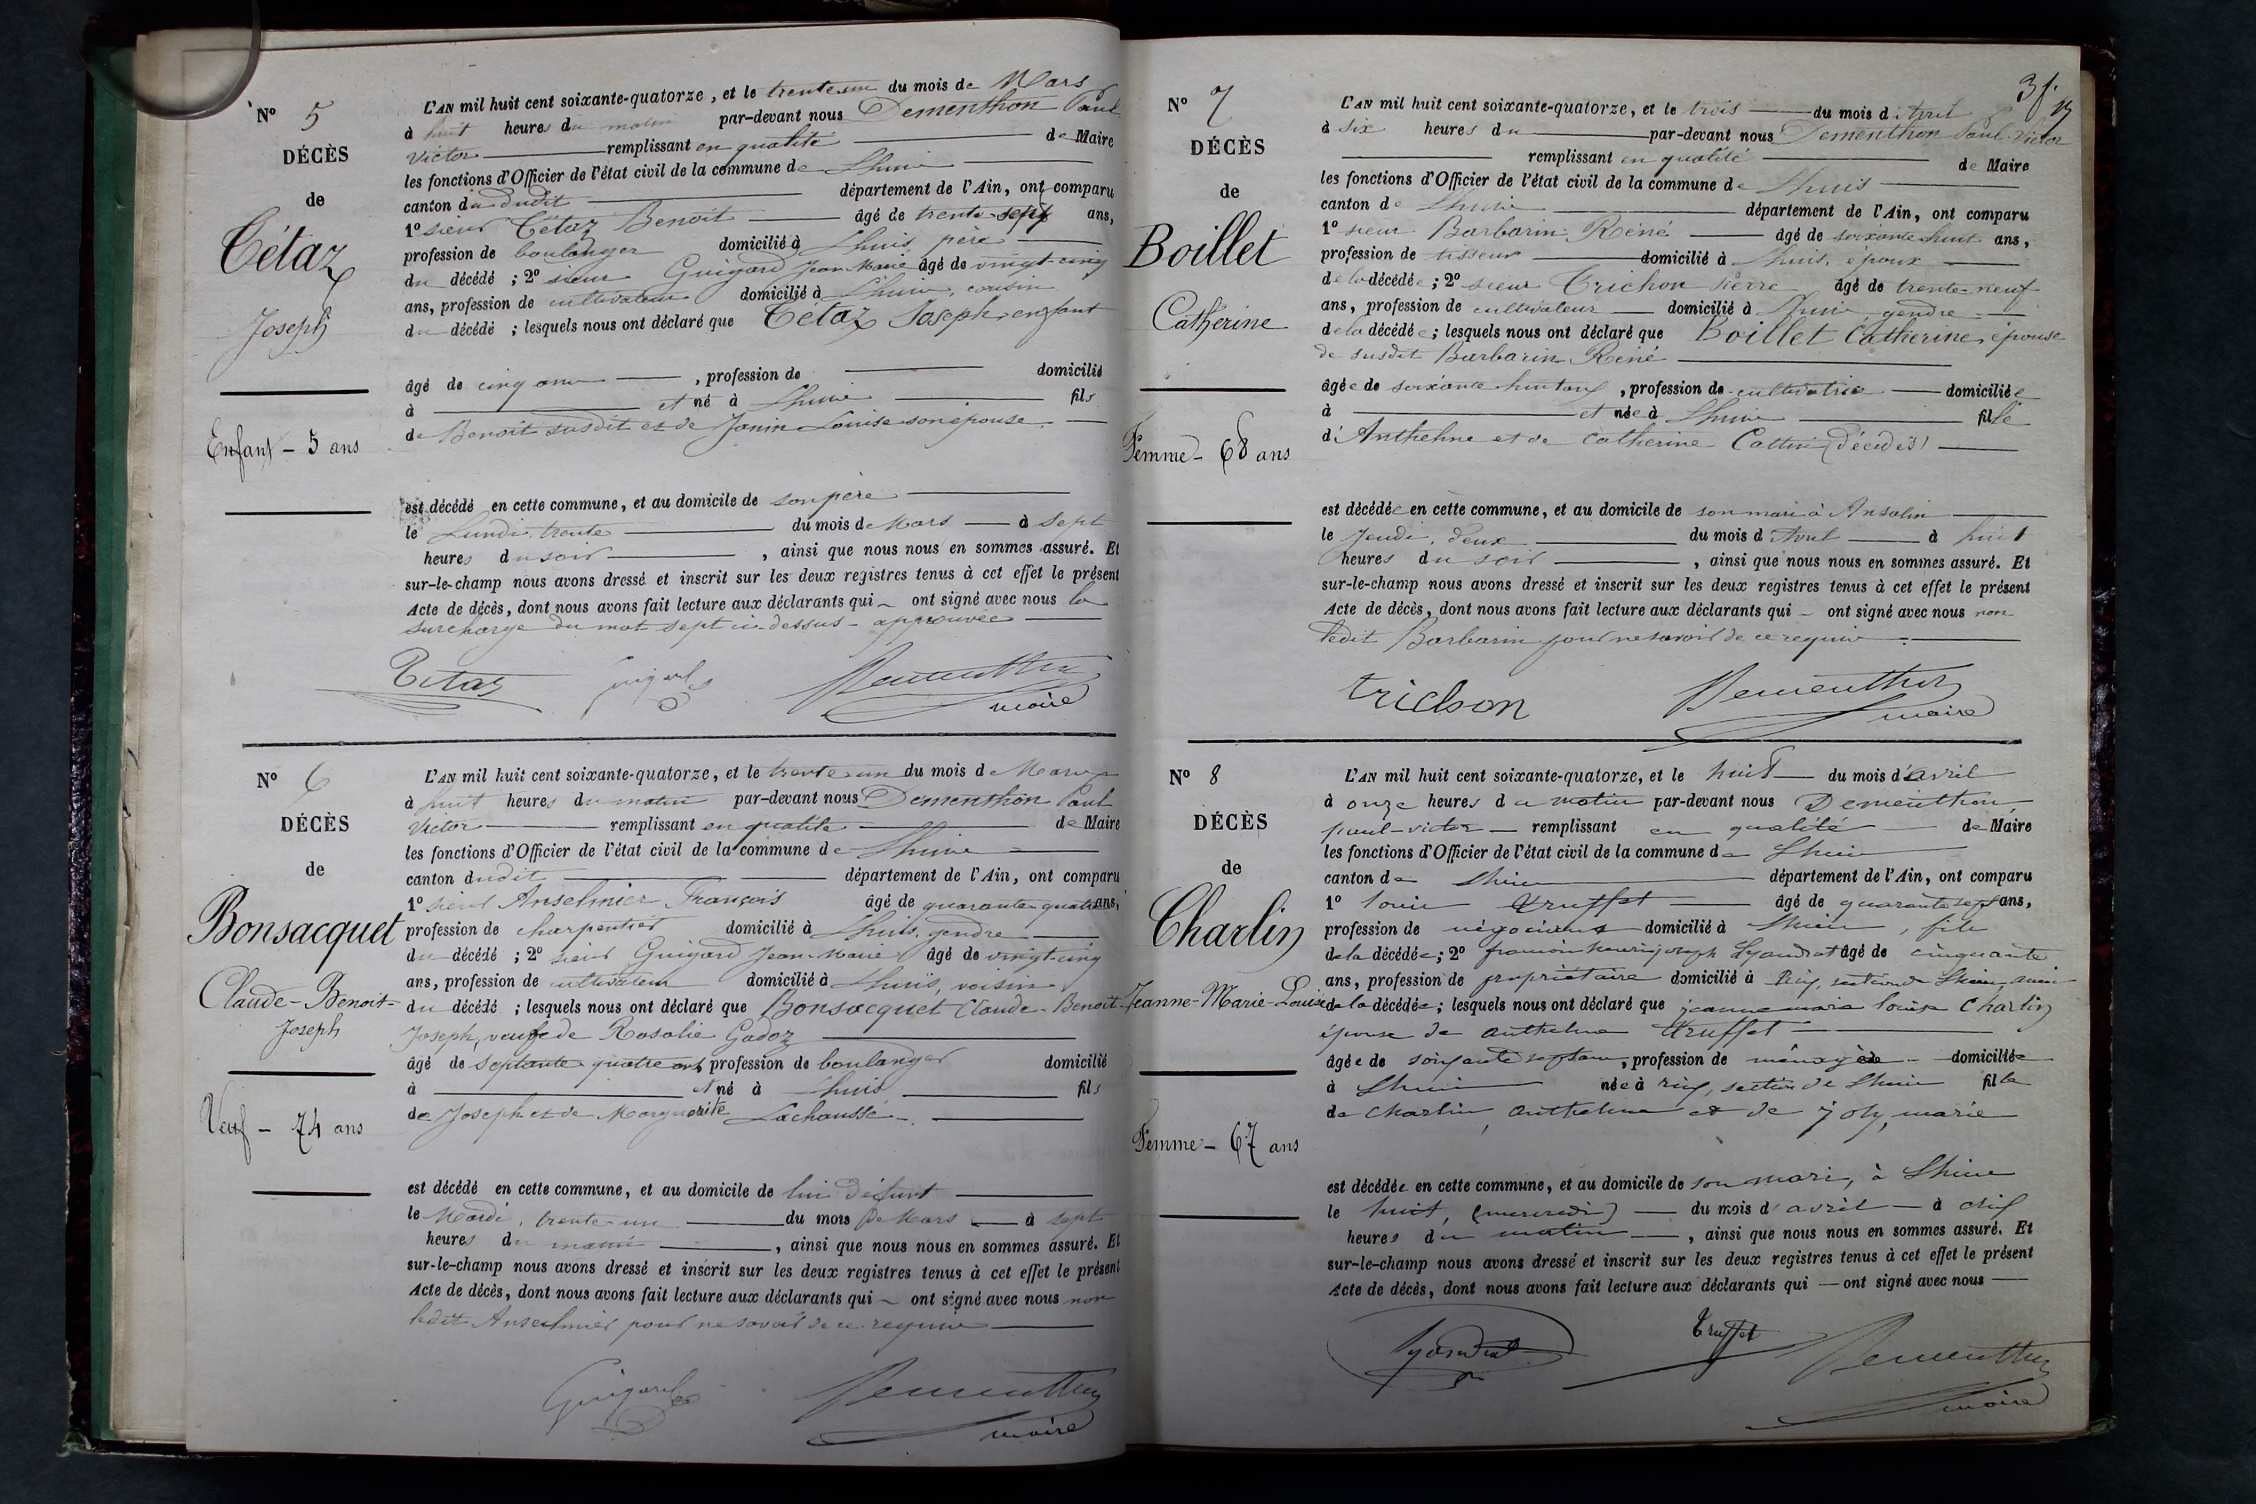 No 5
DÉCÈS
de
Tétaz
Joseph
Enfant - 5 ans
L'AN mil huit cent soixante-quatorze, et le trente un du mois de Mars
à huit heures du matin par-devant nous Dementhon Paul
Victor remplissant en qualité de Maire
les fonctions d'Officier de l'état civil de la commune de Lhuis
canton du dudit département de l'Ain, ont comparu
1o sieur Tétaz Benoit âgé de trente sept ans,
profession de boulanger domicilié à Lhuis, père
du décédé ; 2o sieur Guigard Jean Marie âgé de vingt-cinq
ans, profession de cultivateur domicilié à Lhuis, cousin
du décédé ; lesquels nous ont déclaré que Tétaz Joseph, enfant
âgé de cinq ans , profession de domicilié
à et né à Lhuis fils
de Benoit susdit et de Janin Louise son épouse.
est décédé en cette commune, et au domicile de son père
le Lundi, trente du mois de Mars à sept
heures du soir , ainsi que nous nous en sommes assuré. Et
sur-le-champ nous avons dressé et inscrit sur les deux registres tenus à cet effet le présent
Acte de décès, dont nous avons fait lecture aux déclarants qui ont signé avec nous la
surcharge du mot sept ci-dessus approuvée
Tétaz Guigard Dementhon
maire
No 6
DÉCÈS
de
Bonsacquet
Claude-Benoit-
Joseph
Veuf - 74 ans
L'AN mil huit cent soixante-quatorze, et le trente un du mois de Mars
à huit heures du matin par-devant nous Dementhon Paul
Victor remplissant en qualité de Maire
les fonctions d'Officier de l'état civil de la commune de Lhuis
canton dudit département de l'Ain, ont comparu
1o sieur Anselmier François âgé de quarante quatre ans,
profession de charpentier domicilié à Lhuis, gendre
du décédé ; 2o sieur Guigard Jean-Marie âgé de vingt-cinq
ans, profession de cultivateur domicilié à Lhuis, voisin
du décédé ; lesquels nous ont déclaré que Bonsacquet Claude-Benoit-
Joseph, veuf de Rosalie Gadoz
âgé de septante quatre ans, profession de boulanger domicilié
à et né à Lhuis fils
de Joseph et de Marguerite Lachausse.
est décédé en cette commune, et au domicile de lui défunt
le Mardi, trente un du mois de Mars à sept
heures du matin , ainsi que nous nous en sommes assuré. Et
sur-le-champ nous avons dressé et inscrit sur les deux registres tenus à cet effet le présent
Acte de décès, dont nous avons fait lecture aux déclarants qui ont signé avec nous non
ledit Anselmier pour ne savoir de ce requis
Guigard Dementhon
maire
No 7
DÉCÈS
de
Boillet
Catherine
Femme - 68 ans
L'AN mil huit cent soixante-quatorze, et le trois du mois d'Avril
à six heures du par-devant nous Dementhon Paul Victor
remplissant en qualité de Maire
les fonctions d'Officier de l'état civil de la commune de Lhuis
canton de Lhuis département de l'Ain, ont comparu
1o sieur Barbarin Réné âgé de soixante huit ans,
profession de tisseur domicilié à Lhuis, époux
de la décédée ; 2o sieur Trichon Pierre âgé de trente-neuf
ans, profession de cultivateur domicilié à Lhuis, gendre
de la décédée ; lesquels nous ont déclaré que Boillet Catherine, épouse
de susdit Barbarin Réné
âgée de soixante huit ans, profession de cultivatrice domiciliée
à et née à Lhuis fille
d'Anthelme et de Catherine Cattin (décédés)
est décédée en cette commune, et au domicile de son mari à Ansolin
le Jeudi, deux du mois d'Avril à huit
heures du soir , ainsi que nous nous en sommes assuré. Et
sur-le-champ nous avons dressé et inscrit sur les deux registres tenus à cet effet le présent
Acte de décès, dont nous avons fait lecture aux déclarants qui ont signé avec nous non
ledit Barbarin pour ne savoir de ce requis
trichon Dementhon
maire
No 8
DÉCÈS
de
Charlin
Jeanne-Marie-Louise
Femme - 67 ans
L'AN mil huit cent soixante-quatorze, et le huit du mois d'avril
à onze heures du matin par-devant nous Dementhon
paul-victor remplissant en qualité de Maire
les fonctions d'Officier de l'état civil de la commune de Lhuis
canton de Lhuis département de l'Ain, ont comparu
1o louis truffet âgé de quarante sept ans,
profession de négociant domicilié à Lhuis, fils
de la décédée ; 2o françois henri joseph Lyandrat âgé de cinquante
ans, profession de propriétaire domicilié à Rix, section de Lhuis,
de la décédée ; lesquels nous ont déclaré que jeanne marie louise Charlin
épouse de anthelme truffet
âgée de soixante sept ans, profession de ménagère domiciliée
à Lhuis née à rix, section de Lhuis fille
de charlin, anthelme et de joly, marie
est décédée en cette commune, et au domicile de son mari, à Lhuis
le huit, (mercredi) du mois d'avril à
heures du matin , ainsi que nous nous en sommes assuré. Et
sur-le-champ nous avons dressé et inscrit sur les deux registres tenus à cet effet le présent
Acte de décès, dont nous avons fait lecture aux déclarants qui ont signé avec nous
Lyandrat Truffet Dementhon
maire